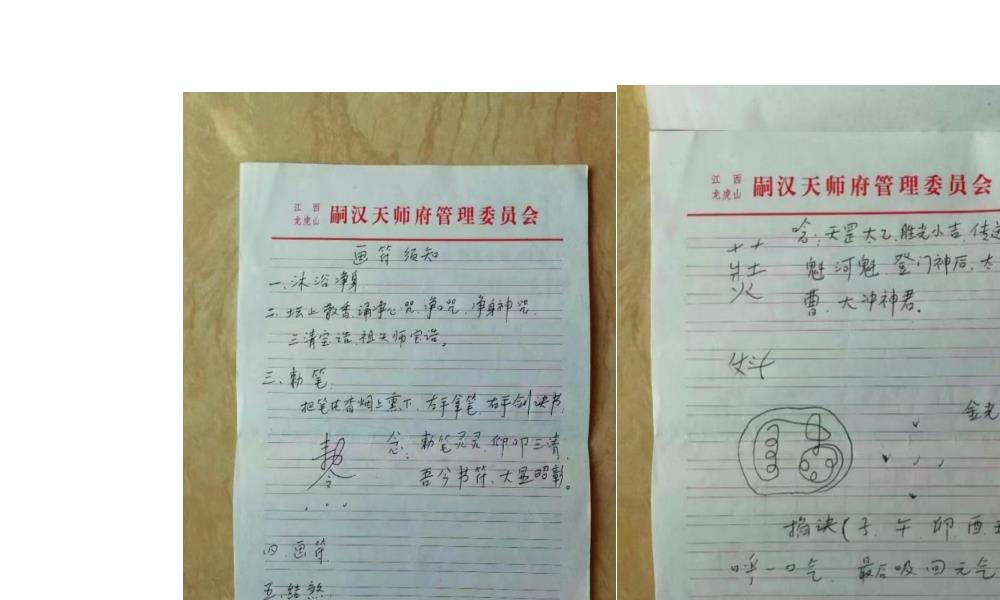 江西
龙虎山
嗣汉天师府管理委员会
画符须知
一、沐浴净身
二、坛上敬香,诵净心咒,净口咒,净身神咒,
三清宝诰,祖天师宝诰。
三、勅笔
把笔在香烟上熏下,左手拿笔,右手剑诀书,
勅令
念:勅笔灵灵,仰叩三清,
吾今书符,大显昭彰。
四、画符
五、结煞
江西
龙虎山
嗣汉天师府管理委员会
念:天罡太乙,胜光小吉,传送
魁河魁,登门神后,太
曹,大冲神君。
金光
掐诀(子 午 卯 酉
呼一口气 最后吸回元气